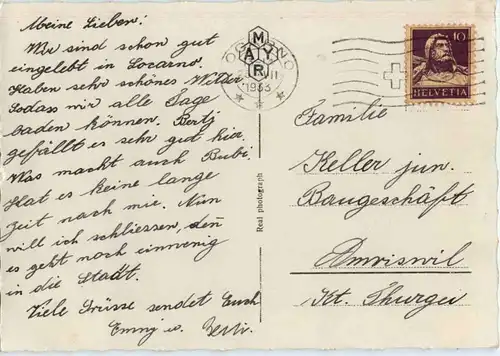 Meine Lieben!
Wir sind schon gut
eingelebt in Locarno.
Haben sehr schönes Wetter
sodass mir alle Tage
baden können. Berty
gefällt es sehr gut hier.
Was macht auch Bubi.
Hat es keine lange
Zeit nach mir. Nun
will ich schliessen, den
es geht noch einwenig
in die Stadt.
Viele Grüsse sendet Euch
Emmy u.
MATYR
VII
1933
10
HELVETIA
Real photograph
Familie
Keller jun.
Baugeschäft
Amriswil
Kt. Thurgau